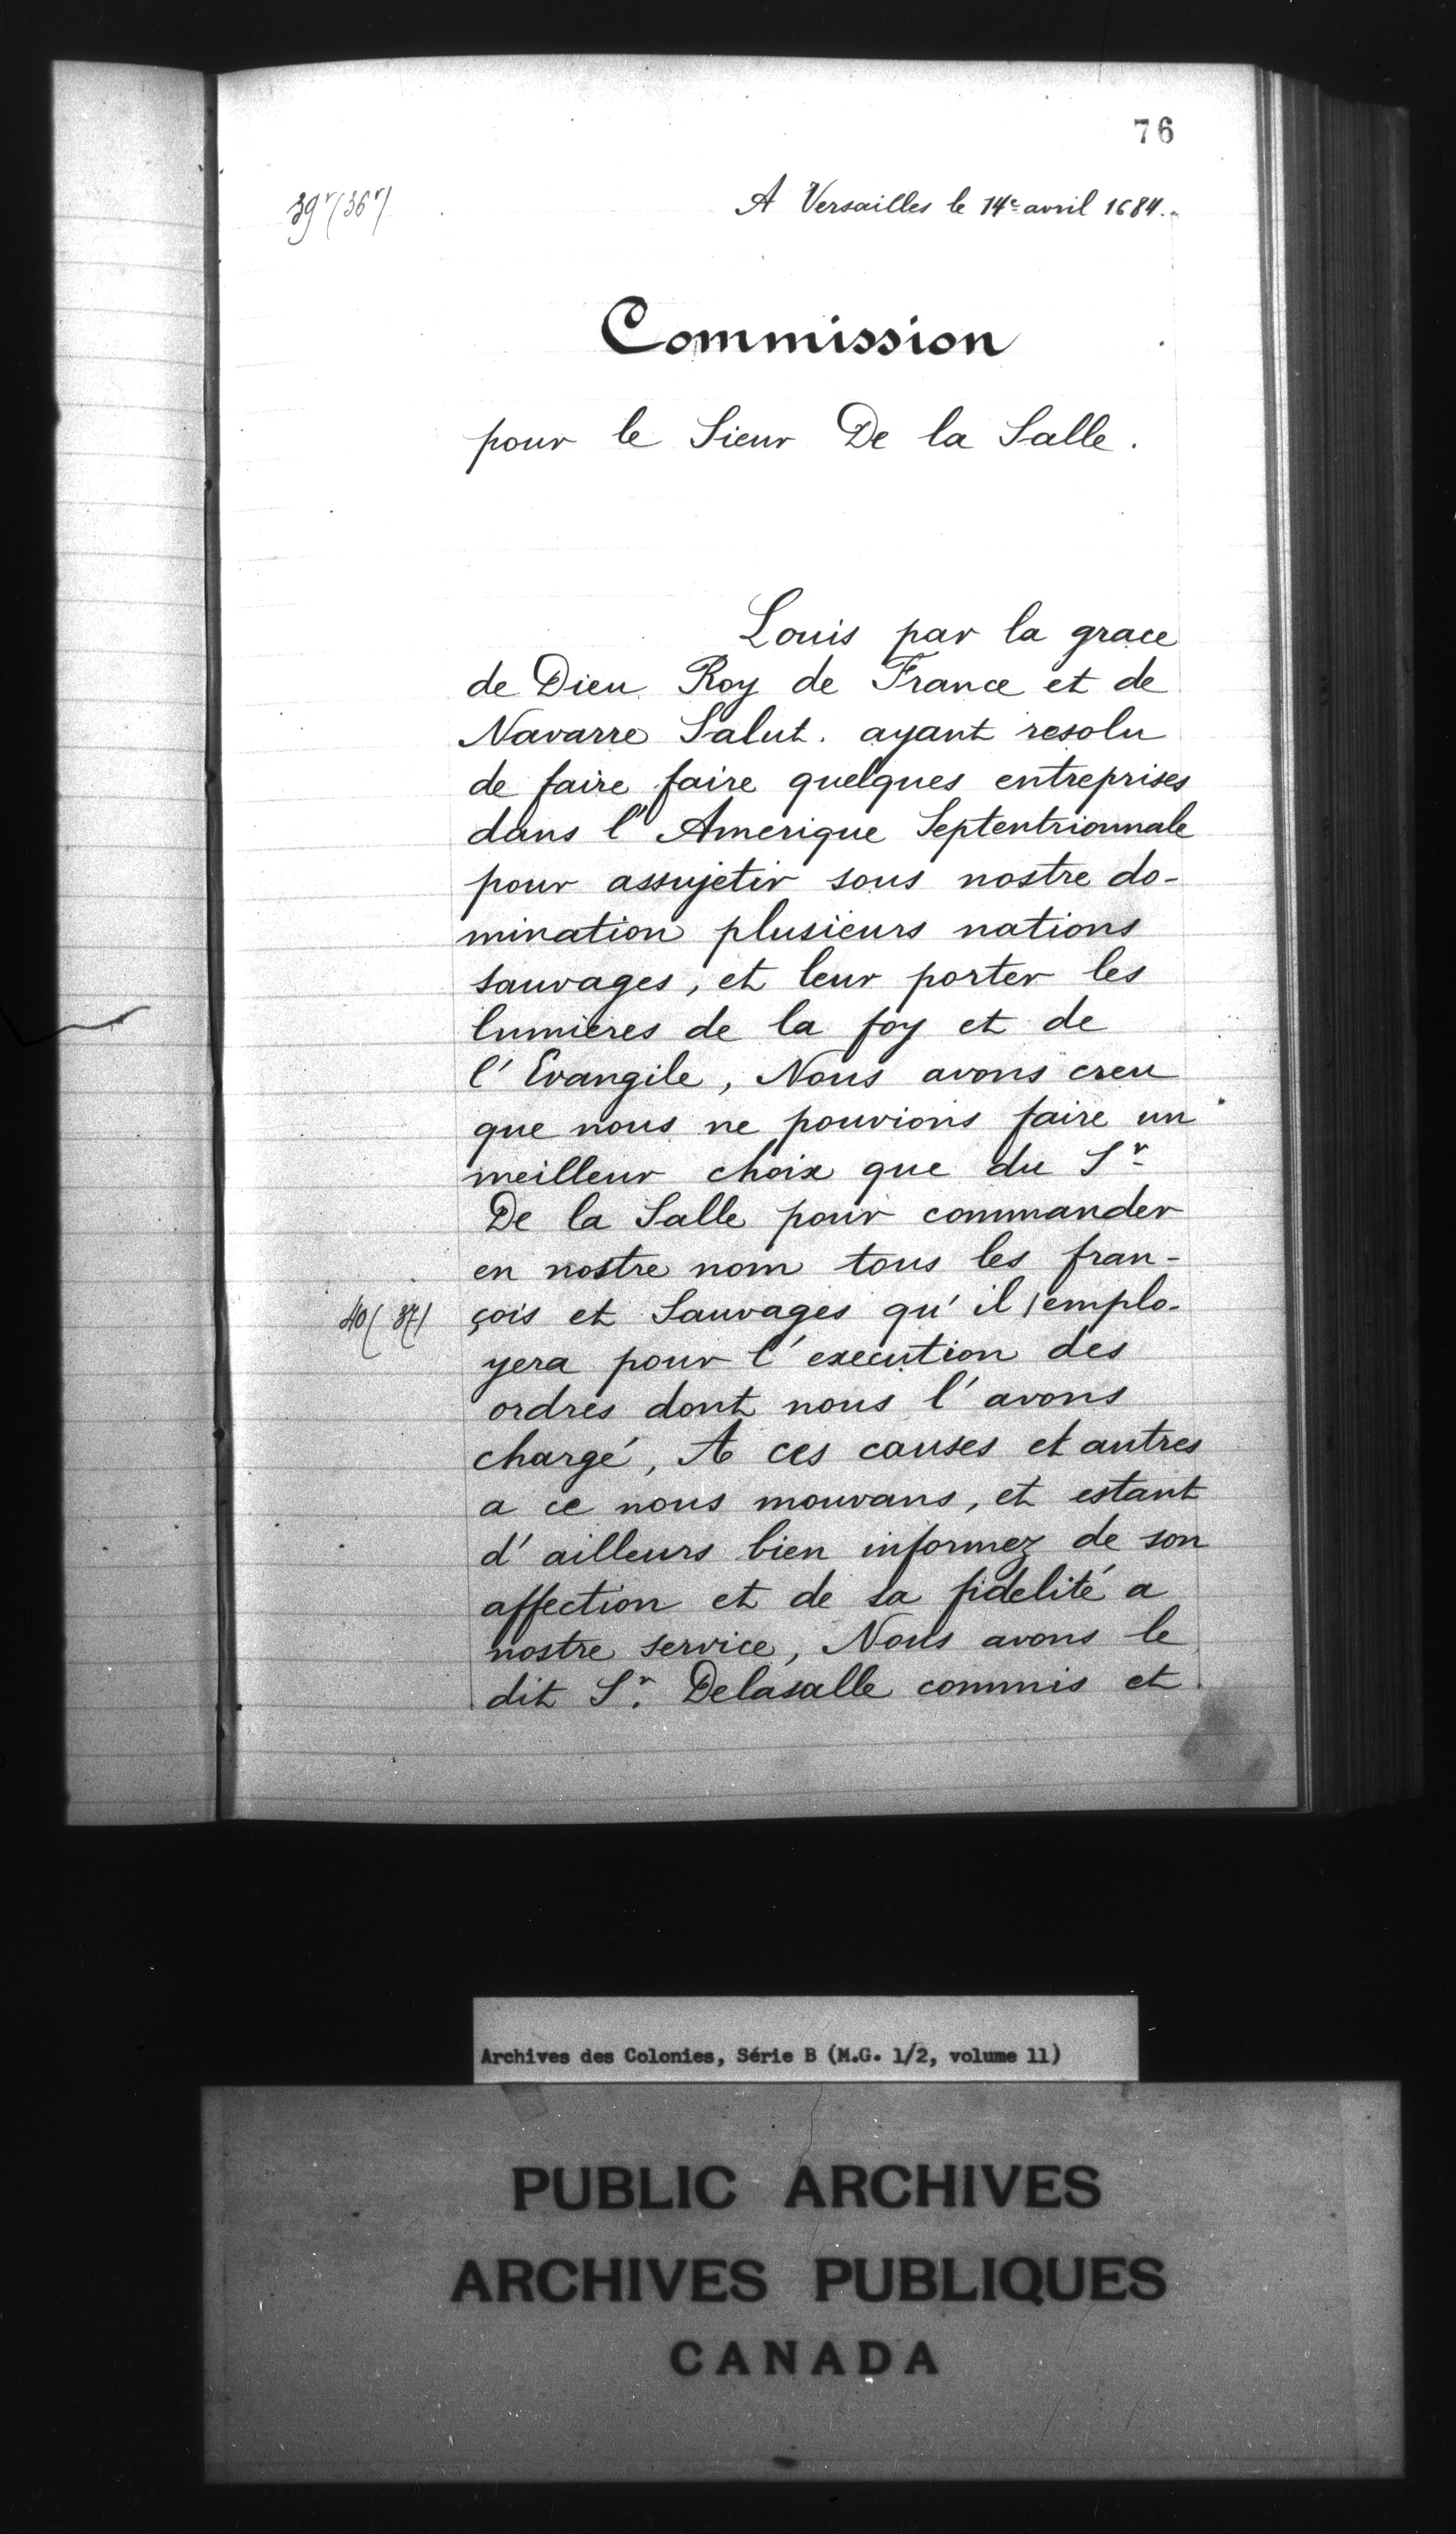 76
39r (36r)
A Versailles le 14e avril 1684.
Commission
pour le Sieur De la Salle.
Louis par la grace
de Dieu Roy de France et de
Navarre Salut. ayant resolu
de faire faire quelques entreprises
dans l'Amerique Septentrionnale
pour assujetir sous nostre do-
mination plusieurs nations
sauvages, et leur porter les
lumieres de la foy et de
l'Evangile, Nous avons creu
que nous ne pouvions faire un
meilleur choix que du Sr
De la Salle pour commander
en nostre nom tous les fran-
40 (37)
çois et Sauvages qu'il / emplo-
yera pour l'execution des
ordres dont nous l'avons
chargé, A ces causes et autres
a ce nous mouvans, et estant
d'ailleurs bien informez de son
affection et de sa fidelité a
nostre service, Nous avons le
dit Sr. Delasalle commis et
Archives des Colonies, Série B (M.G. 1/2, volume 11)
PUBLIC ARCHIVES
ARCHIVES PUBLIQUES
CANADA